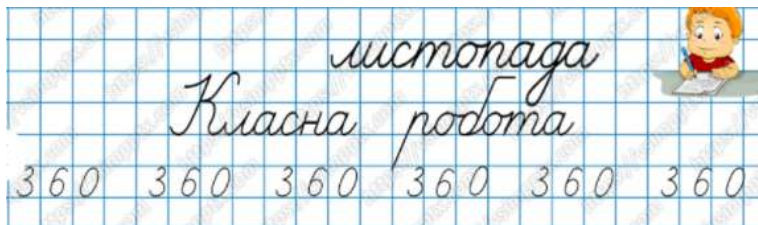 листопада
Класна робота
360 360 360 360 360 360